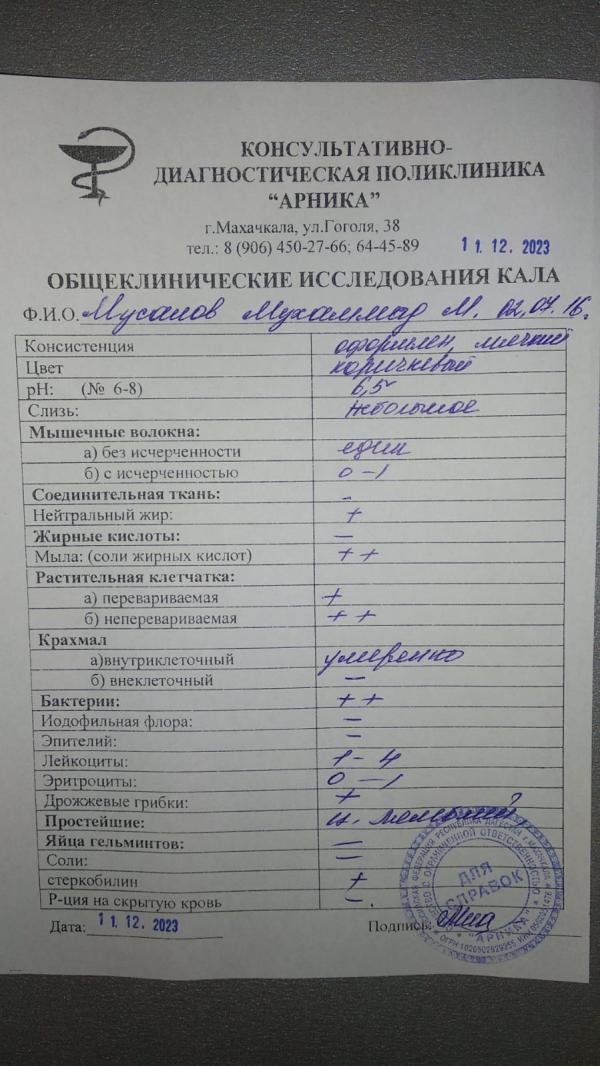 КОНСУЛЬТАТИВНО-
ДИАГНОСТИЧЕСКАЯ ПОЛИКЛИНИКА
“АРНИКА”
г.Махачкала, ул.Гоголя, 38
тел.: 8 (906) 450-27-66; 64-45-89 11.12.2023
ОБЩЕКЛИНИЧЕСКИЕ ИССЛЕДОВАНИЯ КАЛА
Ф.И.О. Мусалов Мухаммад М. 02.07.16.
Консистенция оформлен, мягкий
Цвет коричневый
pH: (№ 6-8) 6,5
Слизь: небольшое
Мышечные волокна:
а) без исчерченности един
б) с исчерченностью 0-1
Соединительная ткань: -
Нейтральный жир: +
Жирные кислоты: —
Мыла: (соли жирных кислот) ++
Растительная клетчатка:
а) перевариваемая +
б) неперевариваемая ++
Крахмал
а)внутриклеточный умеренно
б) внеклеточный —
Бактерии: ++
Иодофильная флора: —
Эпителий: —
Лейкоциты: 1-4
Эритроциты: 0—1
Дрожжевые грибки: +
Простейшие: ц.
Яйца гельминтов: —
Соли: —
стеркобилин +
Р-ция на скрытую кровь —.
Дата: 11.12.2023 Подпись:
ДЛЯ
СПРАВОК
"АРНИКА"